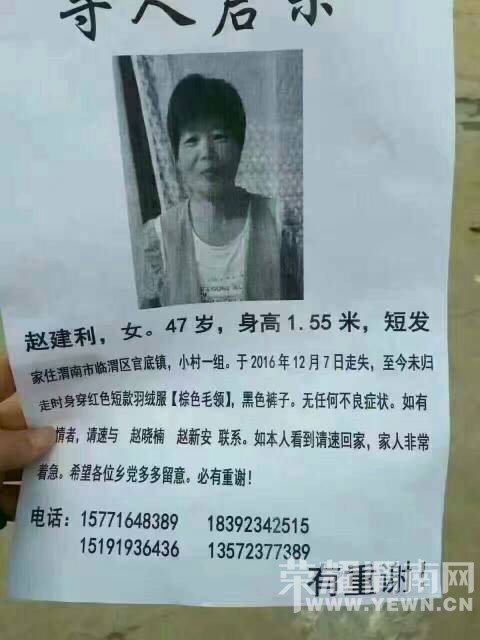 寻人启示
赵建利，女。47岁，身高1.55米，短发
家住渭南市临渭区官底镇，小村一组。于2016年12月7日走失，至今未归
走时身穿红色短款羽绒服【棕色毛领】，黑色裤子。无任何不良症状。如有
情者，请速与 赵晓楠 赵新安 联系。如本人看到请速回家，家人非常
着急。希望各位乡党多多留意。必有重谢！
电话：15771648389 18392342515
15191936436 13572377389
有重谢！
荣耀渭南网
WWW.YEWN.CN